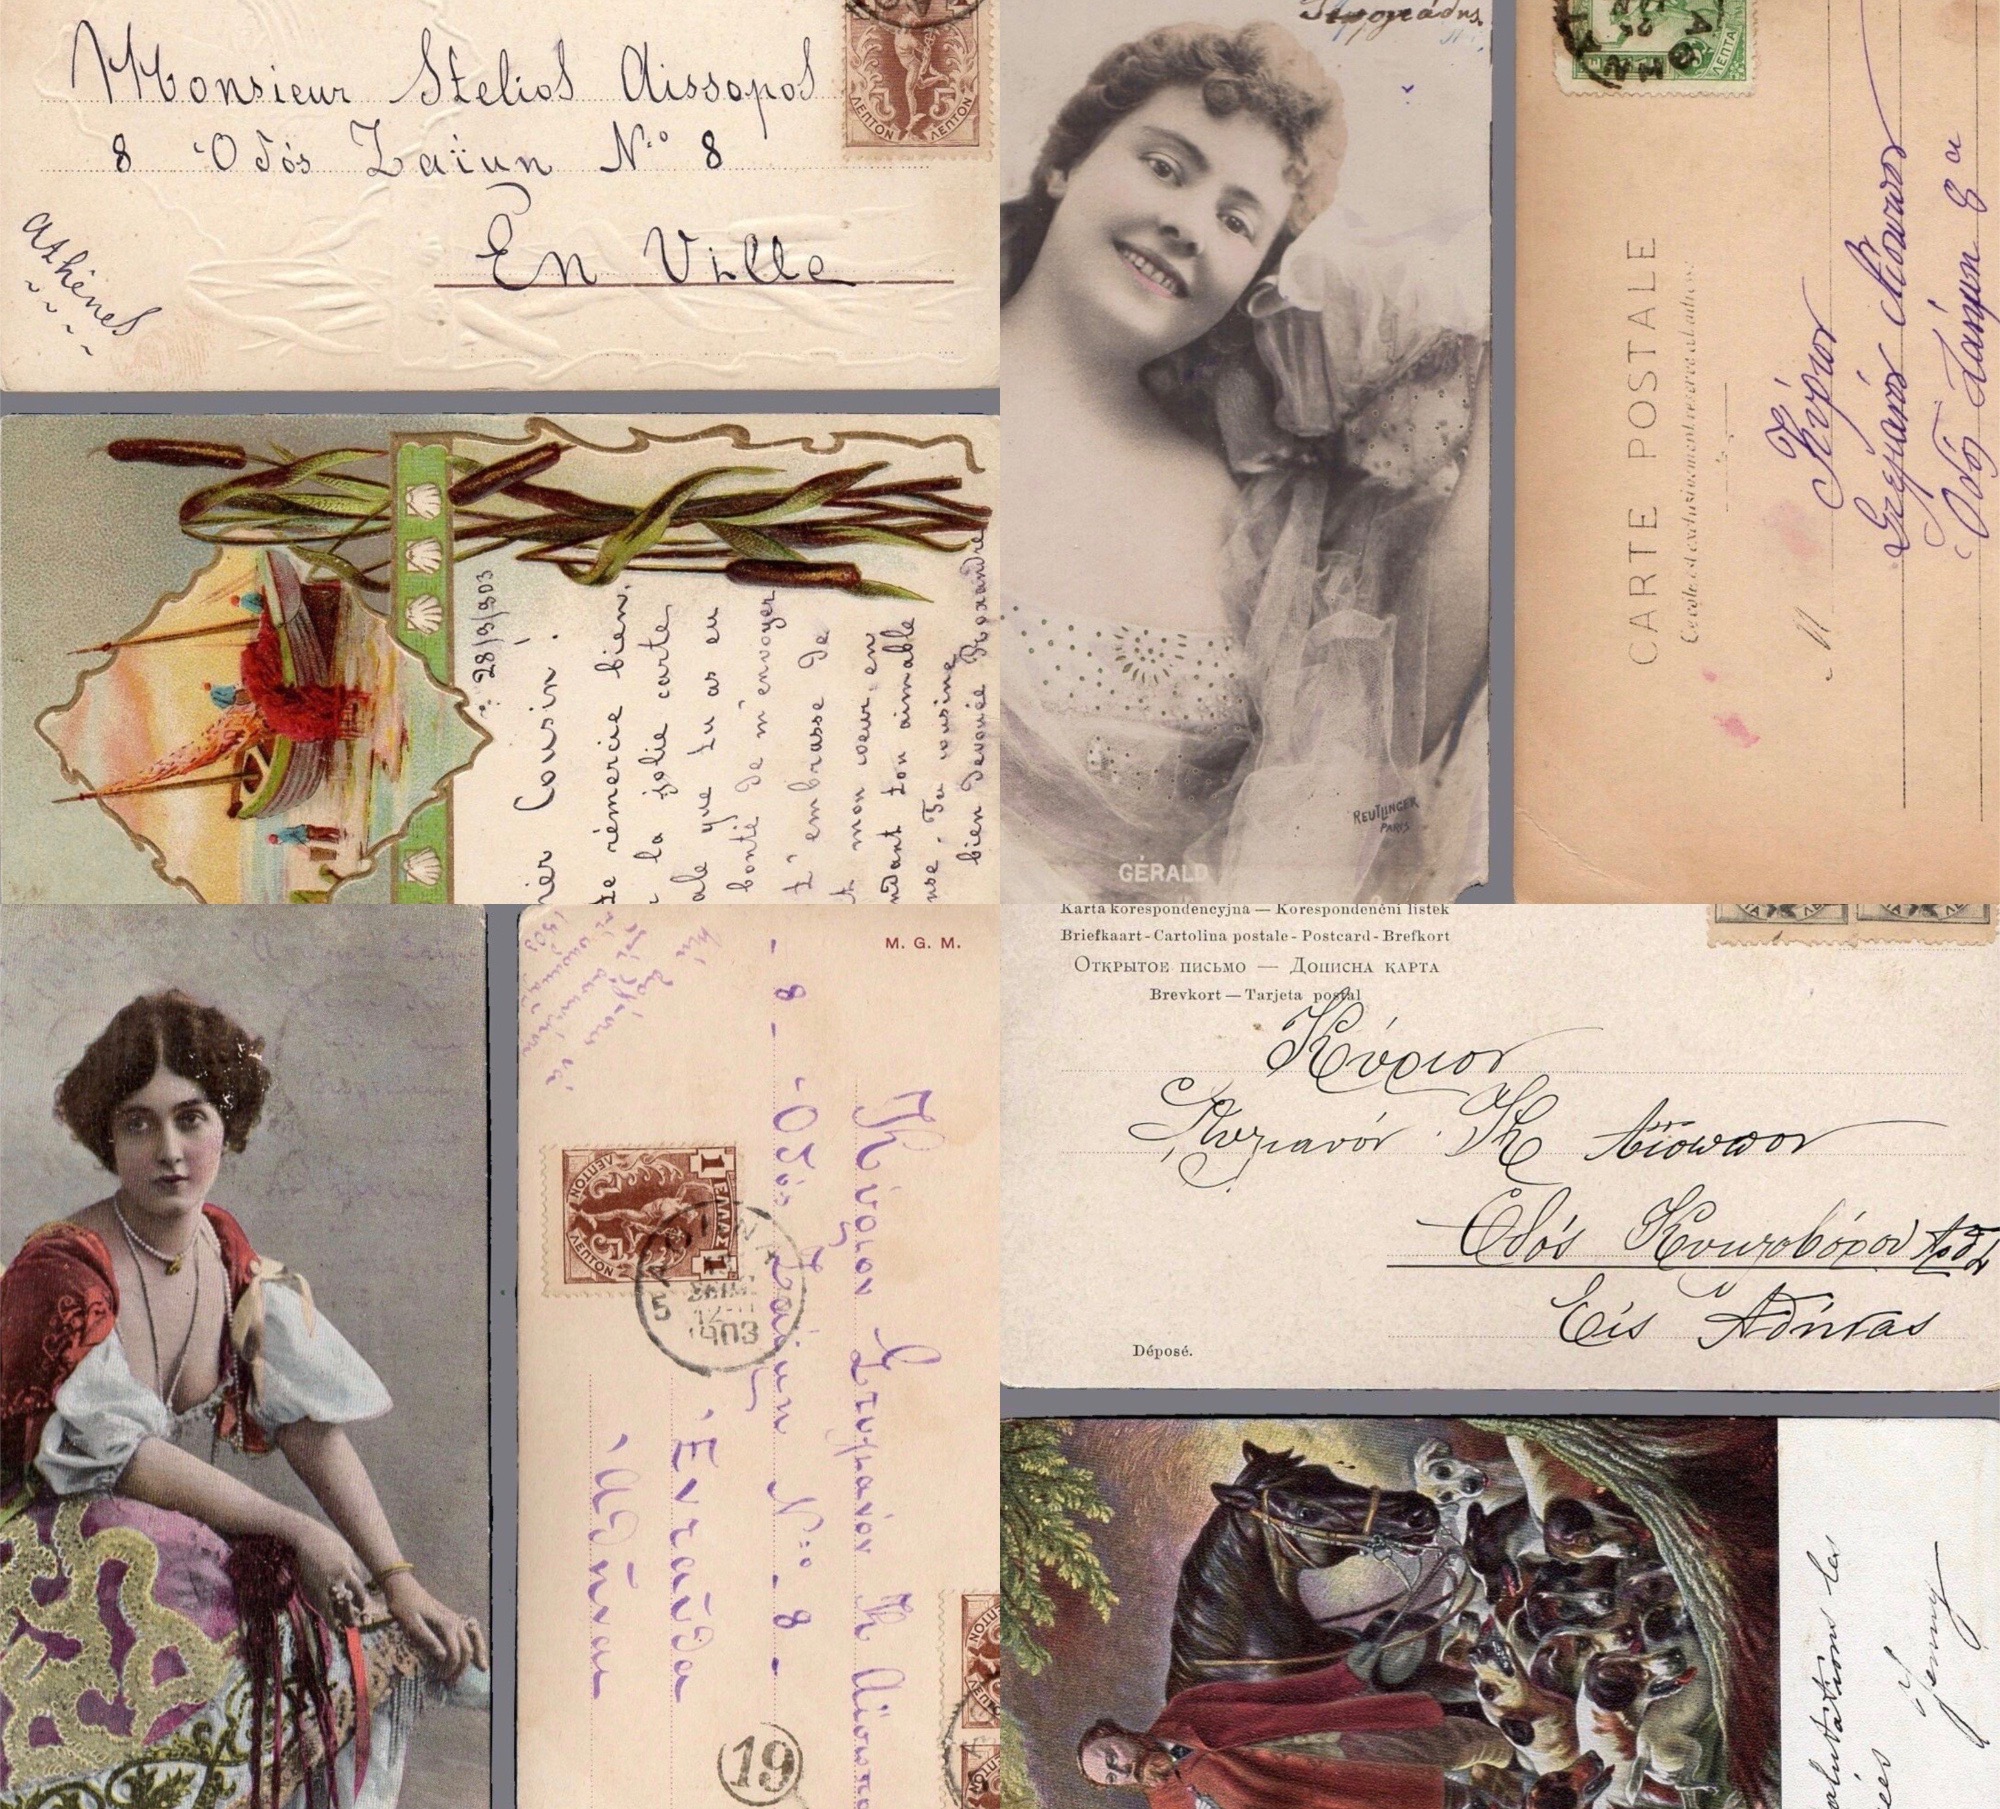 Monsieur Stelios Aissopos
8 Ὁδός Ζαΐμη Nº 8
En Ville
Athènes
ΛΕΠΤΟΝ ΛΕΠΤΟΝ
28/3/903
Cousin!
te rémercie bien
la jolie carte
ale que tu as eu
bonté de m'envoyer
t'embrasse de
mon coeur en
ndant ton aimable
nse. Ta cousine
bien dévouée Roxandre
REUTLINGER
PARIS
GÉRALD
ΛΕΠΤΑ
CARTE POSTALE
Ce côté est exclusivement réservé à l'adresse
Κύριον
Στυλιανόν Αἴσωπον
Ὁδός Ζαΐμη 8 α
M. G. M.
Κύριον Στυλιανόν Κ Αἴσωπο
- 8 - Ὁδός Ζαΐμη Nº - 8 -
Ἐνταῦθα
Ἀθῆναι
1 ΕΛΛΑΣ 1
ΛΕΠΤΟΝ ΛΕΠΤΟΝ
5
1903
19
Karta korespondencyjna — Korespondenčni listek
Briefkaart - Cartolina postale - Postcard - Brefkort
Открытое письмо — Дописна карта
Brevkort — Tarjeta postal
Κύριον
Στυλιανόν Κ Αἴσωπον
Ὁδός
Εἰς Ἀθήνας
Déposé.
alutations les
ées
Jenny